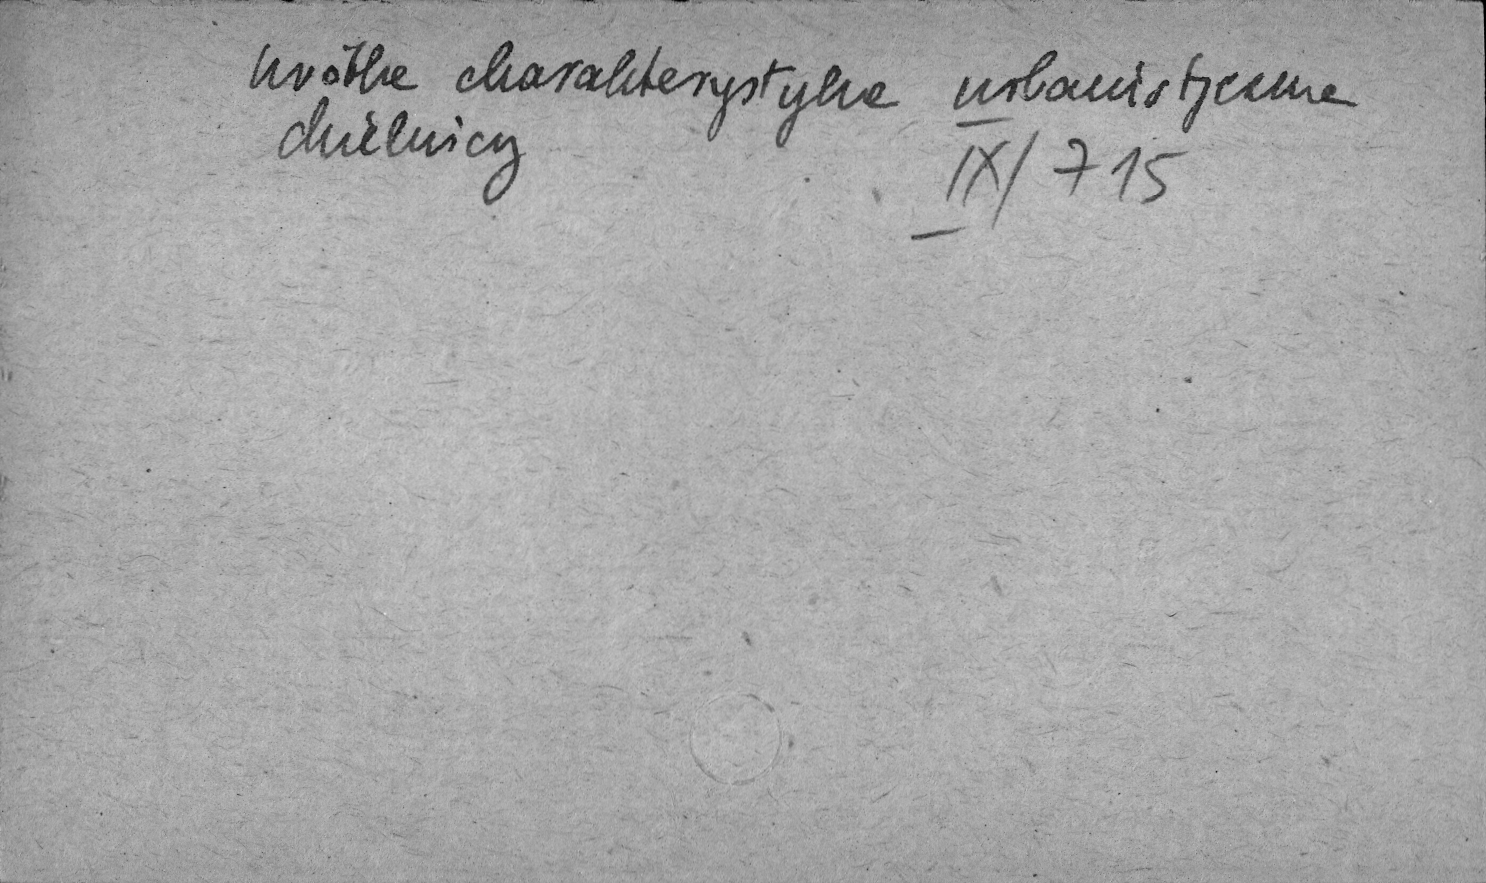 krótka charakterystyka urbanistyczna
dzielnicy
IX/715